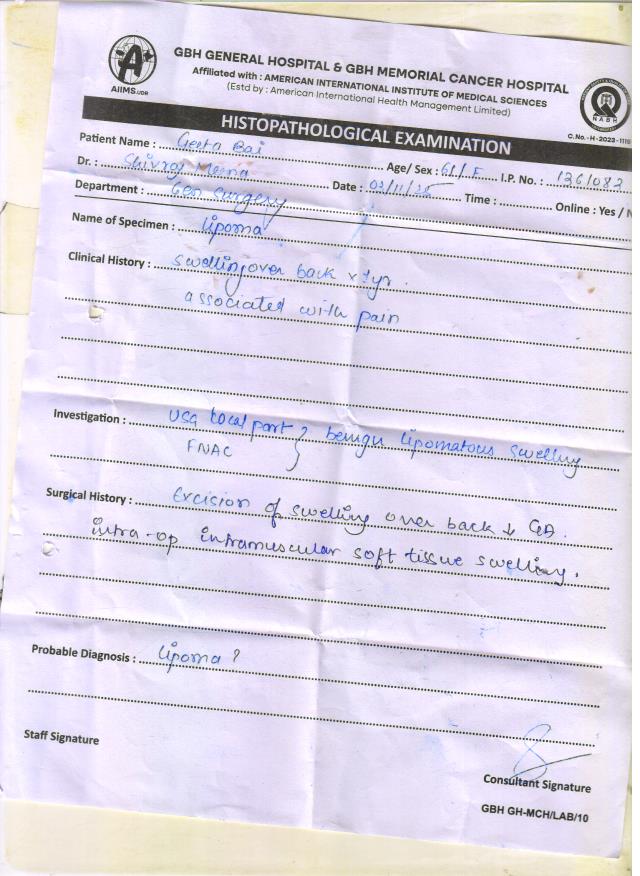 AIIMS.UDR
GBH GENERAL HOSPITAL & GBH MEMORIAL CANCER HOSPITAL
Affiliated with : AMERICAN INTERNATIONAL INSTITUTE OF MEDICAL SCIENCES
(Estd by : American International Health Management Limited)
NABH
C.No.-H-2023-1115
HISTOPATHOLOGICAL EXAMINATION
Patient Name : Geeta Bai Age/ Sex : 61/F I.P. No. : 136/082
Dr. : Shivraj Meena Date : 03/11/25 Time : Online : Yes / N
Department : Gen surgery
Name of Specimen : lipoma
Clinical History : swelling over back x 1yr.
associated with pain
Investigation : USG local part } benign lipomatous swelling
FNAC
Surgical History : Excision of swelling over back ↓ GA.
intra-op intramuscular soft tissue swelling.
Probable Diagnosis : lipoma ?
Staff Signature
Consultant Signature
GBH GH-MCH/LAB/10